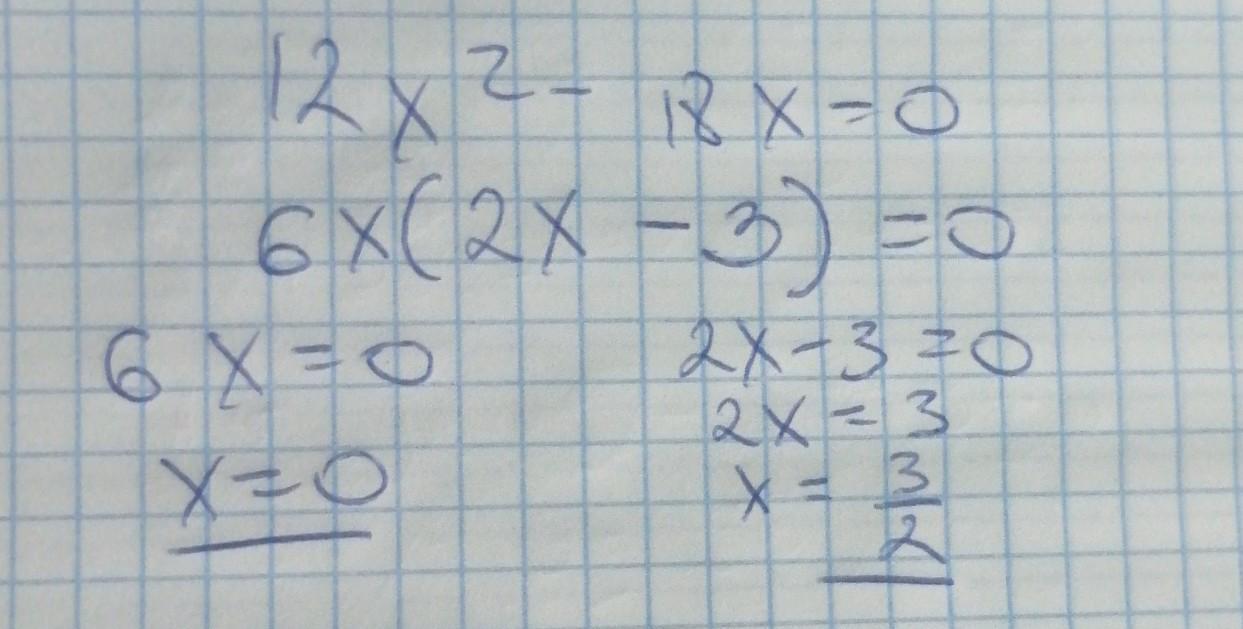 12x² - 18x = 0
6x(2x - 3) = 0
6x = 0
x = 0
2x - 3 = 0
2x = 3
x = 3/2